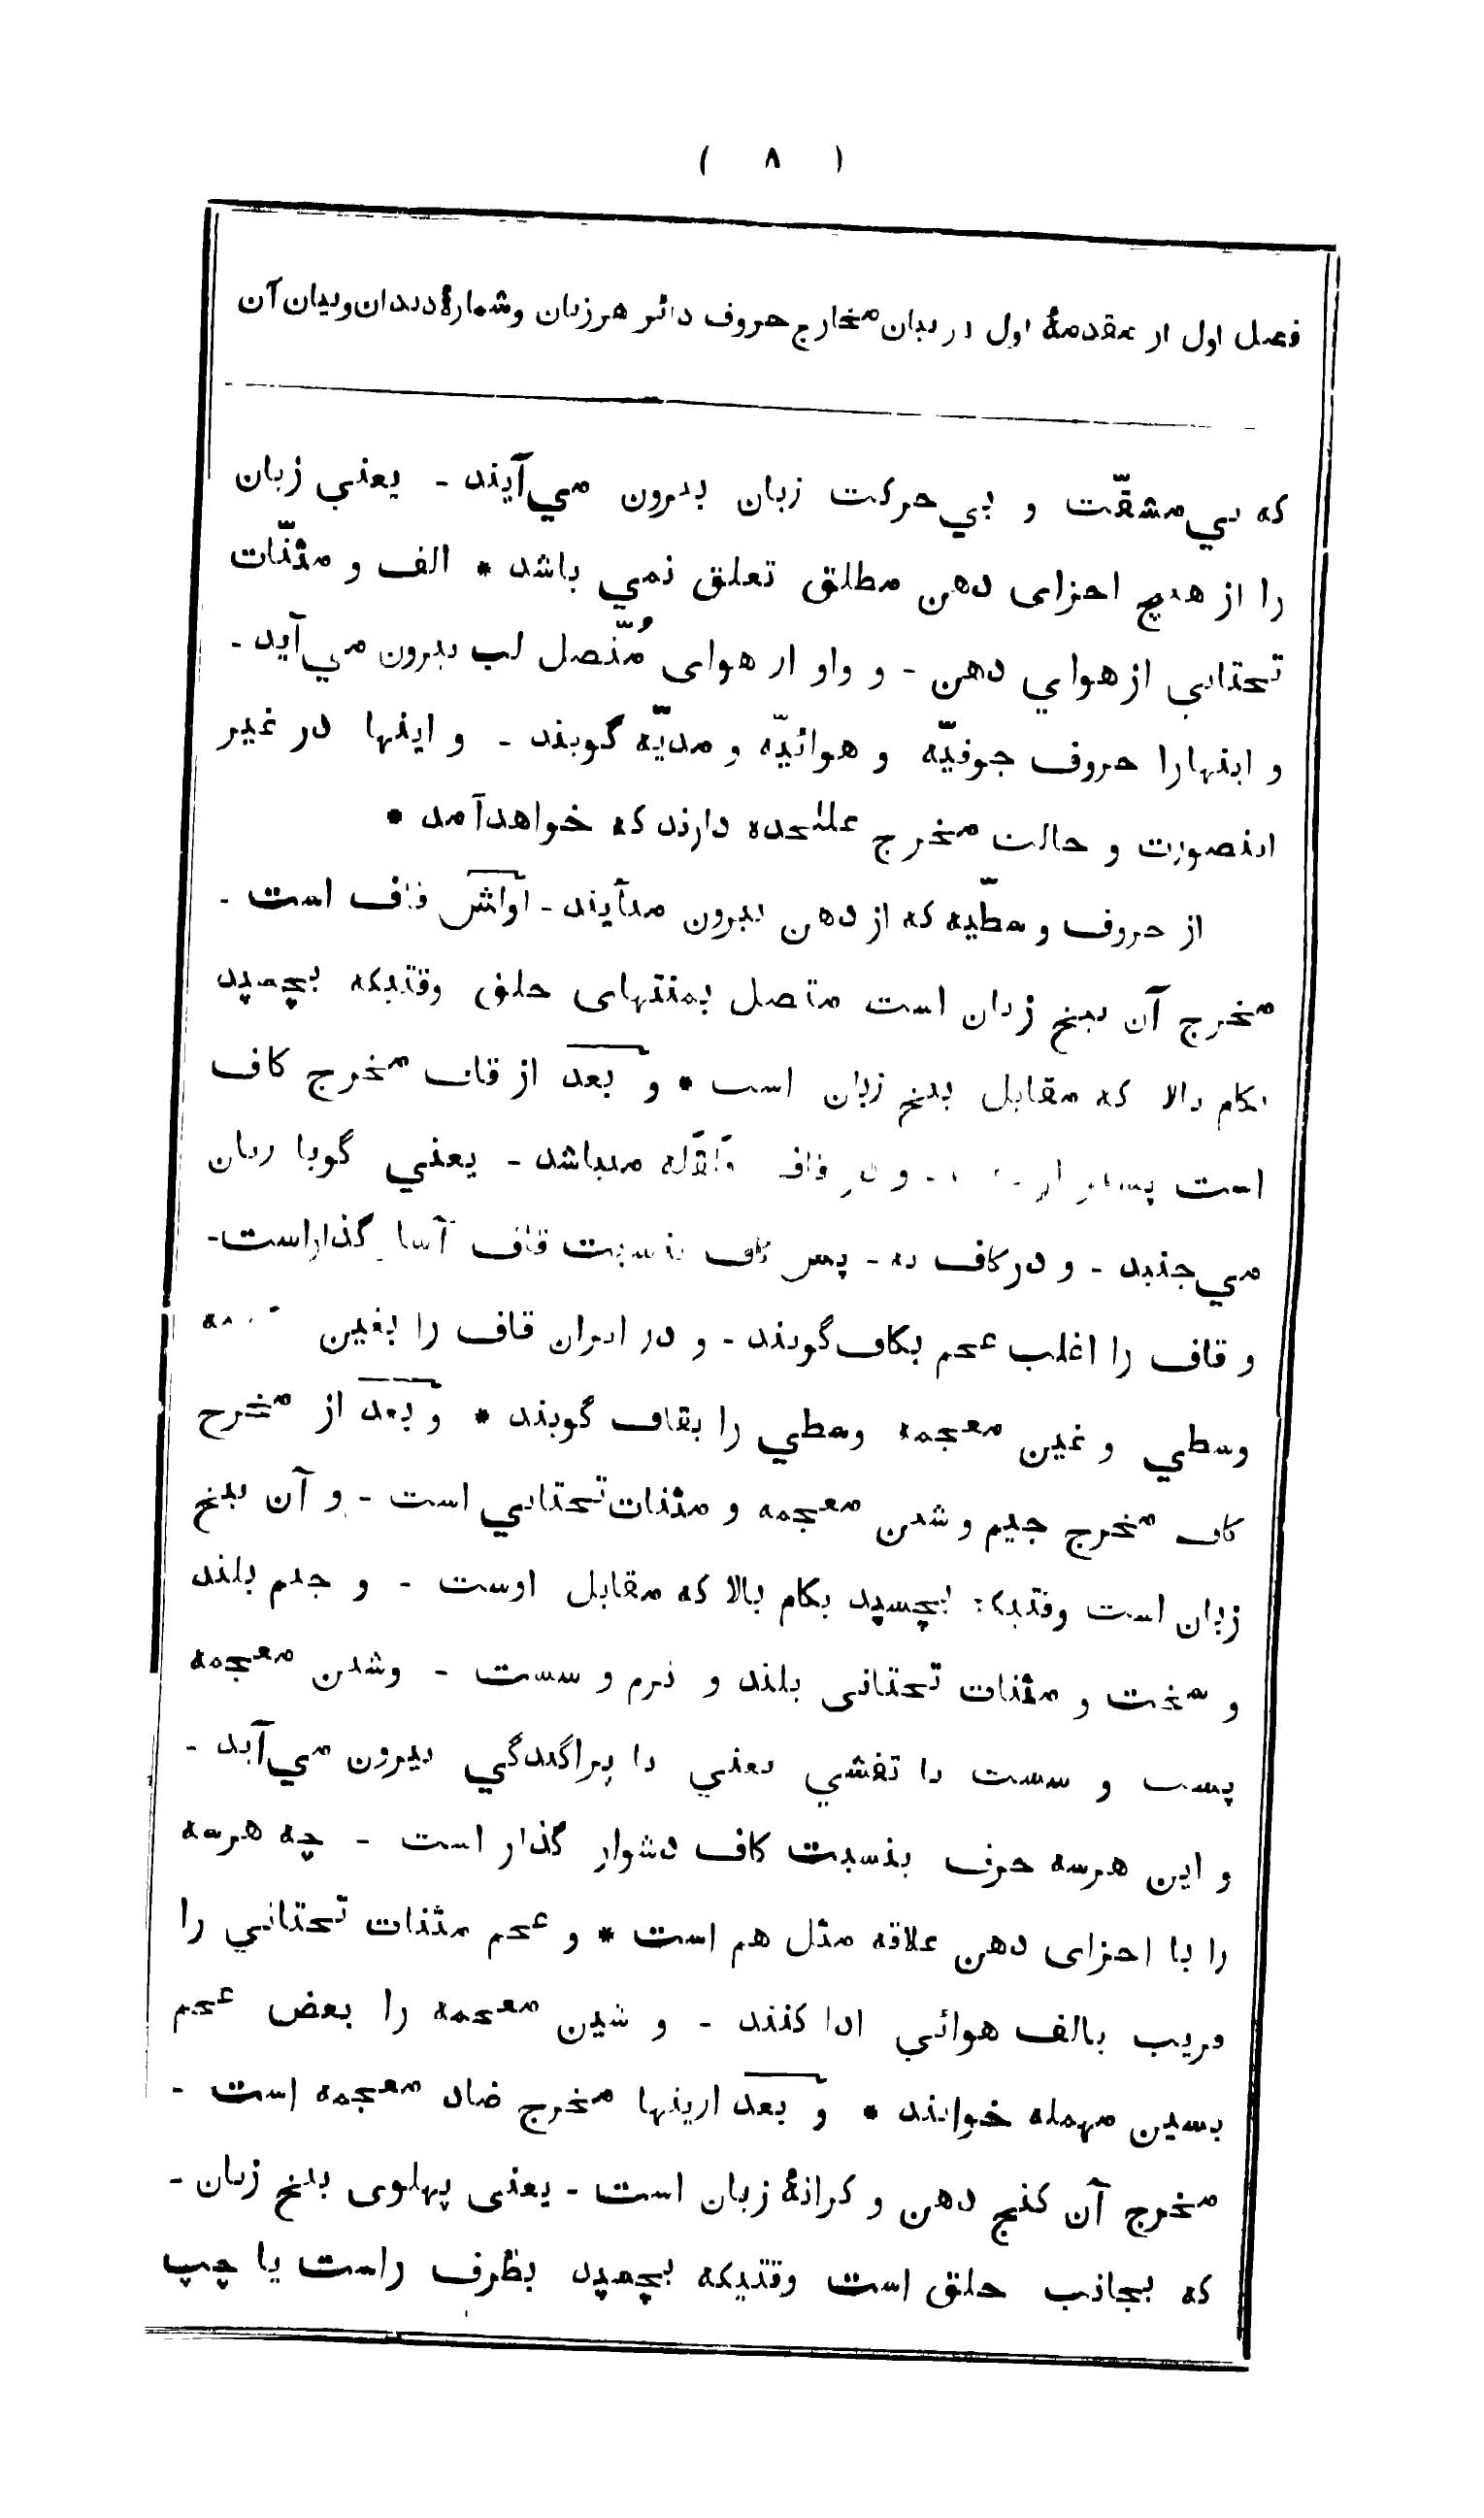 ( ۸ )
فصل اول از مقدمهٔ اول در بیان مخارج حروف دائر هر زبان و شمارهٔ دندان و بیان آن
که بي مشقّت و بي حرکت زبان بیرون مي آیند - یعني زبان
را از هیچ اجزای دهن مطلق تعلق نمي باشد * الف و مثنّات
تحتاني از هواي دهن - و واو از هوای مُتّصل لب بیرون مي آید -
و اینهارا حروف جوفیّه و هوائیّه و مدیّه گویند - و اینها در غیر
اینصورت و حالت مخرج علٰحده دارند که خواهد آمد *
از حروف وسطیّه که از دهن بیرون میآیند - اوّلش قاف است -
مخرج آن بیخ زبان است متصل بمنتهای حلق وقتیکه بچسپد
بکام بالا که مقابل بیخ زبان است * و بعد از قاف مخرج کاف
است پستر از و در قاف قلقله میباشد - یعني گویا زبان
مي جنبد - و در کاف نه - پس کاف بنسبت قاف آسان گذار است -
و قاف را اغلب عجم بکاف گویند - و در ایران قاف را بغین
وسطي و غین معجمه وسطي را بقاف گویند * و بعد از مخرج
کاف مخرج جیم و شین معجمه و مثنات تحتاني است - و آن بیخ
زبان است وقتیکه بچسپد بکام بالا که مقابل اوست - و جیم بلند
و سخت و مثنات تحتانی بلند و نرم و سست - وشین معجمه
پست و سست با تفشي یعني با پراگندگي بیرون مي آید -
و این هرسه حرف بنسبت کاف دشوار گذار است - چه هرسه
را با اجزای دهن علاقه مثل هم است * و عجم مثنات تحتاني را
قریب بالف هوائي ادا کنند - و شین معجمه را بعض عجم
بسین مهمله خوانند * و بعد ازینها مخرج ضاد معجمه است -
مخرج آن کنج دهن و کرانهٔ زبان است - یعنی پهلوی بیخ زبان -
که بجانب حلق است وقتیکه بچسپد بطرف راست یا چپ